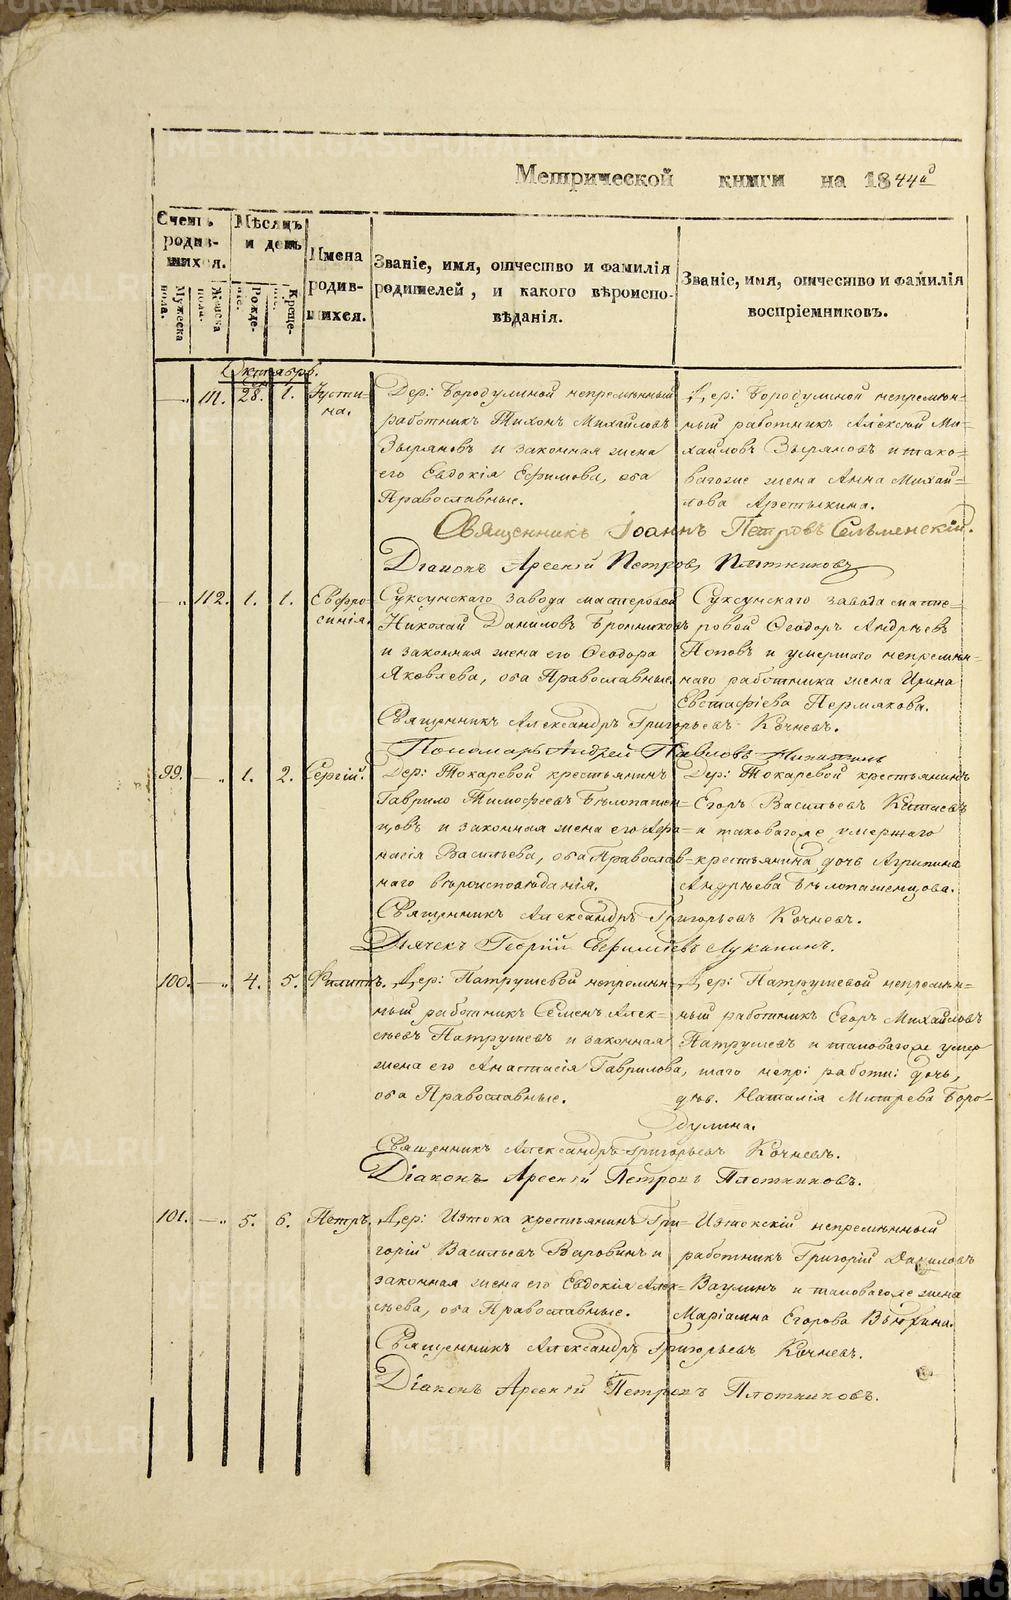 Метрической книги на 1844й
Счетъ родив-шихся.
Мужеска пола.
Женска пола.
Мѣсяцъ и день
Рожде-нія.
Креще-нія.
Имена родив-шихся.
Званіе, имя, отчество и фамилія родителей, и какого вѣроиспо-вѣданія.
Званіе, имя, отчество и фамилія воспріемниковъ.
Октябрь.
—„ 111. 28. 1. Иусти-
на.
Дер: Бородулиной непремѣнный
работникъ Тихонъ Михайловъ
Зыряновъ и законная жена
его Евдокія Ефимова, оба
Православные.
Дер: Бородулиной непремѣн=
ный работникъ Алексѣй Ми=
хайловъ Зыряновъ и тако=
вагоже жена Анна Михай=
лова Аретькина.
Священникъ Іоаннъ Петровъ Сельменскій.
Діаконъ Арсеній Петровъ Плотниковъ
—„ 112. 1. 1. Евфро-
синія.
Суксунскаго завода мастеровой
Николай Даниловъ Бронниковъ
и законная жена его Ѳеодора
Яковлева, оба Православные.
Суксунскаго завода масте=
ровой Ѳеодоръ Андрѣевъ
Поповъ и умершаго непремѣн=
наго работника жена Ирина
Евстафіева Пермякова.
Священникъ Александръ Григорьевъ Кочневъ.
Пономарь Андрей Павловъ Никитинъ
99. —„ 1. 2. Сергій.
Дер: Токаревой крестьянинъ
Гаврило Тимофеевъ Бѣлопашен=
цовъ и законная жена его Афа=
насія Васильева, оба Православ=
наго вѣроисповѣданія.
Дер: Токаревой крестьянинъ
Егоръ Васильевъ Китаевъ
и таковагоже умершаго
крестьянина дочь Агрипина
Андрѣева Бѣлопашенцова.
Священникъ Александръ Григорьевъ Кочневъ.
Дьячекъ Георгій Евфиміевъ Лукапинъ.
100. —„ 4. 5. Филиппъ.
Дер: Патрушевой непремѣн=
ный работникъ Семенъ Алек=
сѣевъ Патрушевъ и законная
жена его Анастасія Гаврилова,
оба Православные.
Дер: Патрушевой непремѣн=
ный работникъ Егоръ Михайловъ
Патрушевъ и таковагоже умер
шаго непр: работн: дочь,
дѣв. Наталія Митрева Боро-
дулина.
Священникъ Александръ Григорьевъ Кочневъ.
Діаконъ Арсеній Петровъ Плотниковъ.
101. —„ 5. 6. Петръ.
Дер: Истока крестьянинъ Гри=
горій Васильевъ Варовинъ и
законная жена его Евдокія Алек=
сѣева, оба Православные.
Истокскій непремѣнный
работникъ Григорій Даниловъ
Ваулинъ и таковагоже жена
Маріамна Егорова Вьюхина.
Священникъ Александръ Григорьевъ Кочневъ.
Діаконъ Арсеній Петровъ Плотниковъ.
METRIKI.GASO-URAL.RU